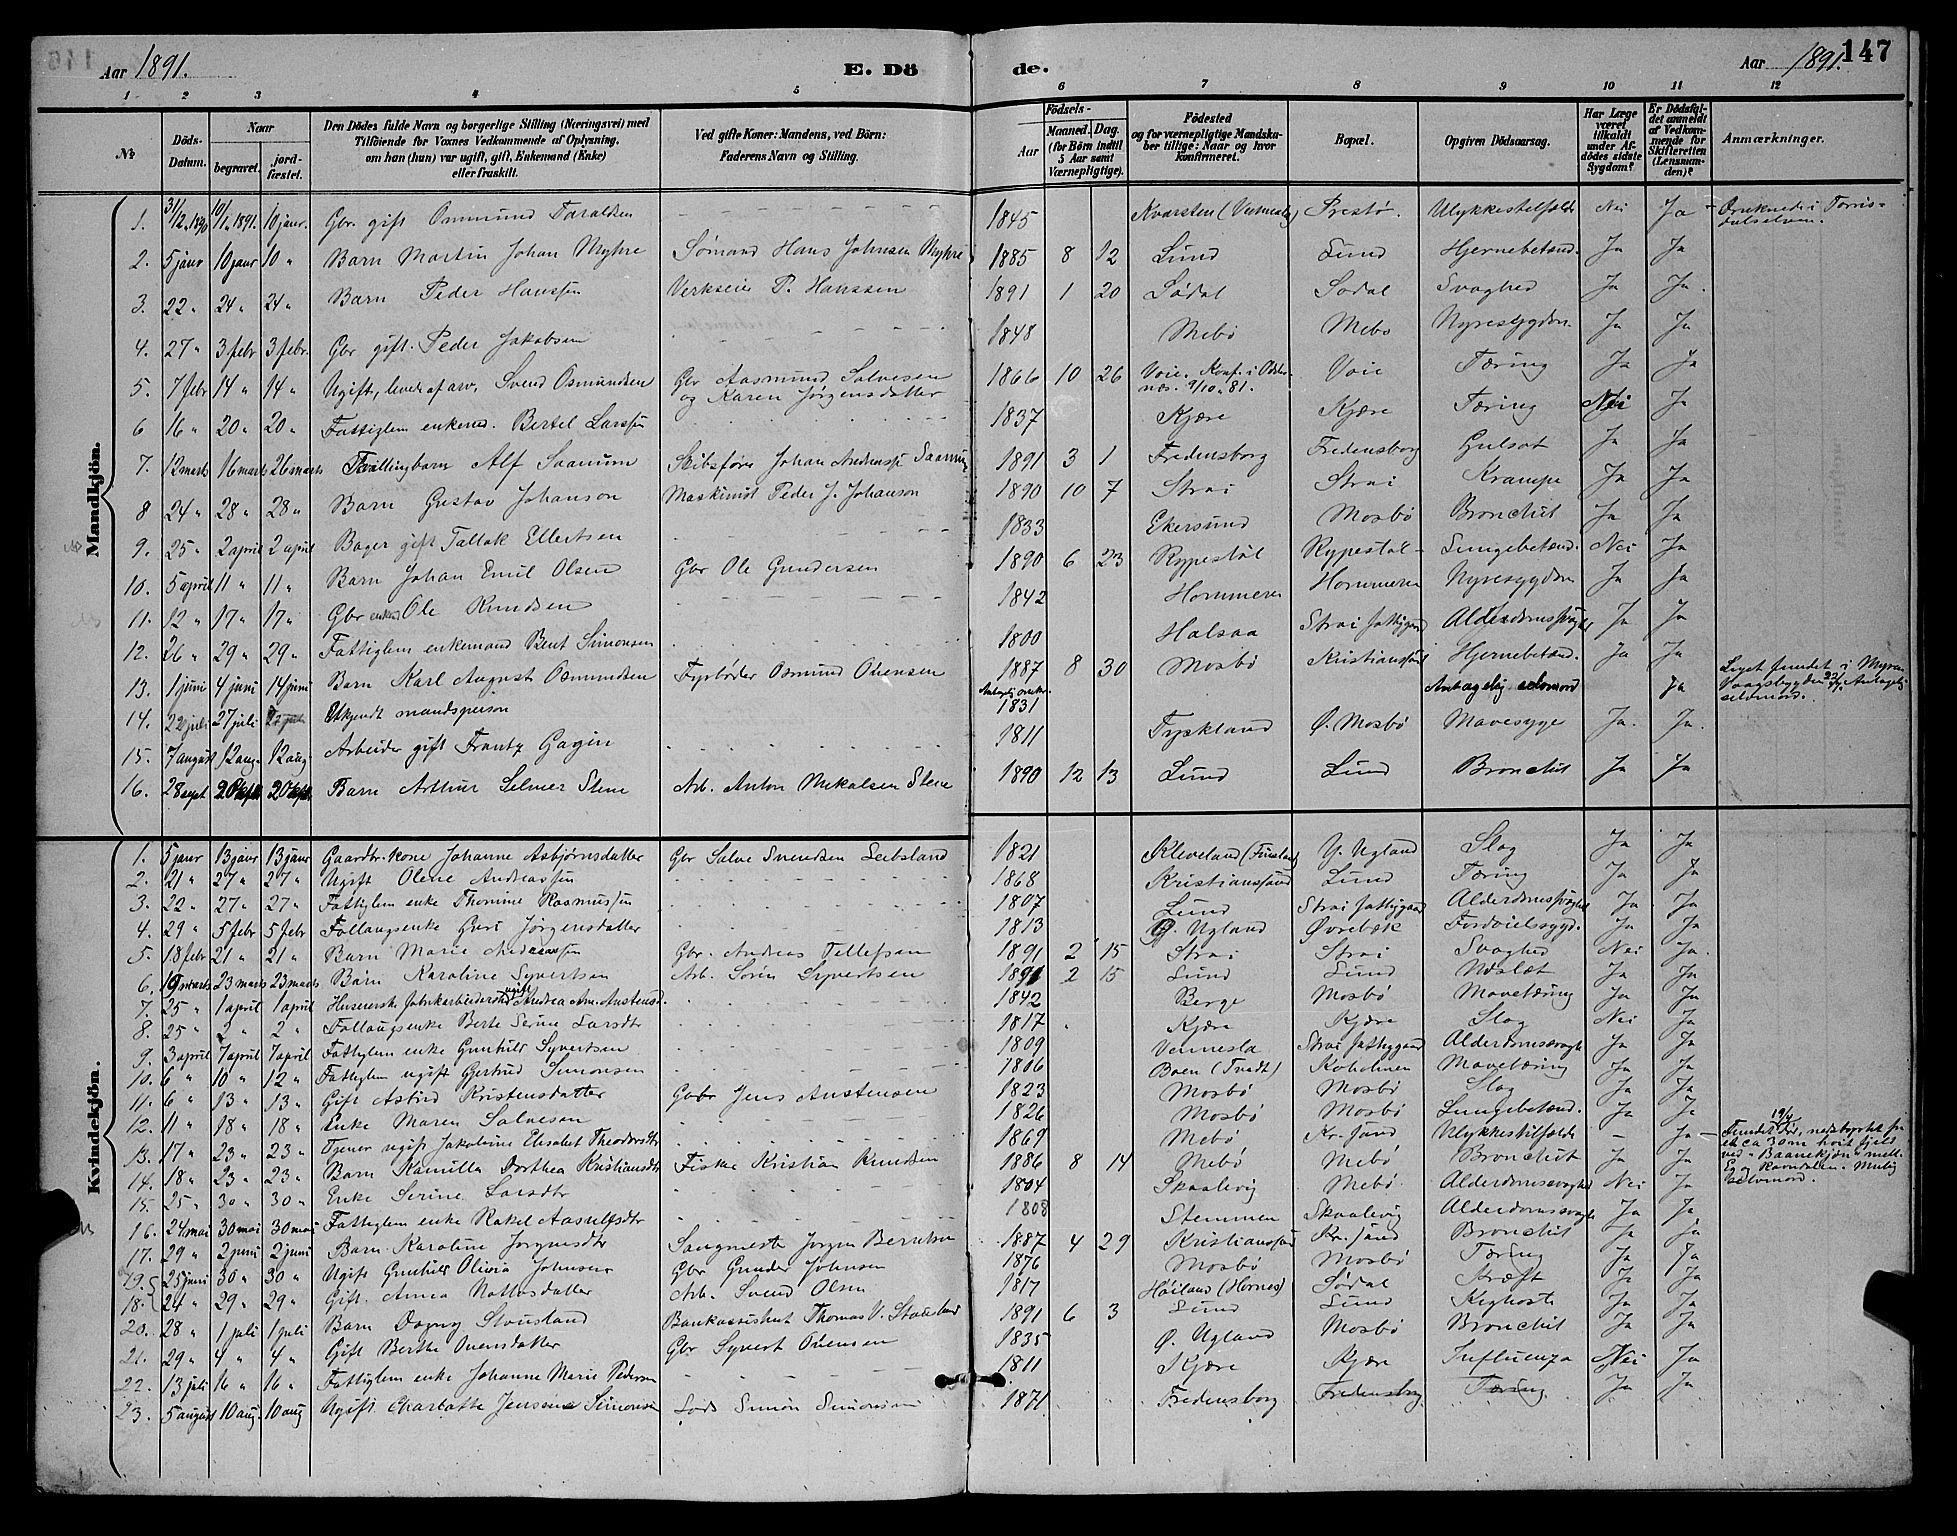 Aar 1891. E. Dö de. Aar 1891. 147
1 2 3 4 5 6 7 8 9 10 11 12
No Döds-Datum. Naar begravet. jord-fæstet. Den Dödes fulde Navn og borgerlige Stilling (Næringsvei) med Tilföiende for Voxnes Vedkommende af Oplysning, om han (hun) var ugift, gift, Enkemand (Enke) eller fraskilt. Ved gifte Koner: Mandens, ved Börn: Faderens Navn og Stilling. Födsels- Aar Maaned. Dag. (for Börn indtil 5 Aar samt Værnepligtige). Födested og for værnepligtige Mandskaber tillige: Naar og hvor konfirmeret. Bopæl. Opgiven Dödsaarsag. Har Læge været tilkaldt under Afdödes sidste Sygdom? Er Dödsfaldet anmeldt af Vedkommende for Skifteretten (Lensmanden)? Anmærkninger.
Mandkjön.
1. 31/12 1890 10/1 1891. 10 janur. Gbr gift Osmund Taraldsen 1845 Kvarsten (Vennesla) Prestø. Ulykkestilfælde Nei Ja Druknede i Torrisdalselven.
2. 5 janr 10 janr 10 " Barn Martin Johan Myhre Sømand Hans Johnsen Myhre 1885 8 12 Lund Lund Hjernebetænd. Ja Ja
3. 22 " 24 " 24 " Barn Peder Hanssen Verkseier P. Hanssen 1891 1 20 Sødal Sødal Svaghed Ja Ja.
4. 27 " 3 febr 3 febr. Gbr gift. Peder Jakobsen 1848 Mebø Mebø Nyresygdom. Ja Ja
5. 7 febr 14 " 14 " Ugift, lever af arv, Svend Osmundsen Gbr Aasmund Salvesen og Karen Jørgensdatter 1866 10 26 Voie. Konf. i Oddernæs. 9/10 81. Voie Tæring Ja Ja
6 16 " 20 " 20 " Fattiglem enkemd. Bertel Larssen 1837 Kjære Kjære Tæring Nei Ja
7. 12 marts 16 marts 26 marts Tvillingbarn Alf Saanum Skibsfører Johan Andreass Saanum 1891 3 1 Fredensborg Fredensborg Gulsot Ja Ja
8 24 " 28 " 28 " Barn Gustav Johanson Maskinist Peder J. Johanson 1890 10 7 Strai Strai Krampe Ja Ja
9. 25 " 2 april 2 april Bager gift Tallak Ellertsen 1833 Ekersund Mosbø Bronchit Ja Ja
10. 5 april 11 " 11 " Barn Johan Emil Olsen Gbr Ole Gundersen 1890 6 23 Rypestøl Rypestøl Lungebetænd. Nei Ja
11. 12 " 17 " 17 " Gbr enkem Ole Knudsen 1842 Hommeren Hommeren Nyresygdom Ja Ja
12. 26 " 29 " 29 " Fattiglem enkemand Bent Simonsen 1800 Halsaa Strai fattiggaard Alderdomssvaghd Ja Ja
13. 1 juni 4 juni 14 juni Barn Karl August Osmundsen Fyrbøder Osmund Ovensen 1887 8 30 Mosbø Kristianssand Hjernebetænd. Ja Ja
14. 22 juli 27 juli 27 juli Ukjendt mandsperson 1831 Antagelig selvmord Ja Liget fundet i Myran Vaagsbygden 22/7. Antagelig selvmord.
15. 7 august 12 aug. 12 aug. Arbeider gift Frantz Gagin 1811 Tyskland Ø. Mosbø Mavesyge Ja. Ja.
16. 28 sept 20 20 Barn Arthur Selmer Stene Arb. Anton Mekalsen Stene 1890 12 13 Lund Lund Bronchit Ja Ja
Kvindekjön.
1. 5 janr 13 janr 13 janr Gaardbr. kone Johanne Asbjørnsdatter Gbr Salve Svendsen Leibsland 1821 Kleveland (Finsland) Y. Ugland Slag Ja Ja
2. 21 " 27 " 27 " Ugift Olene Andreassen 1868 Kristianssand Lund Tæring Ja Ja
3. 22 " 27 " 27 " Fattiglem enke Thomine Rasmussen 1807 Lund Strai fattiggaard Alderdomssvaghed Ja Ja
4. 29 " 5 febr 5 febr Follaugsenke Guri Jørgensdatter 1813 Ø. Ugland Øvrebæk Fordøielsessygd. Ja Ja
5. 18 febr 21 " 21 " Barn Marie Andreassen Gbr. Andreas Tellefsen 1891 2 15 Strai Strai Svaghed Nei Ja.
6. 19 marts 23 mars 23 marts Barn Karoline Syvertsen Arb. Søren Syvertsen 1891 2 15 Lund Lund Utslæt Ja Ja
7. 25 " 1 april 1 april ugift Andrea Am. Austensd. 1842 Berge Mosbø Mavetæring Ja Ja
8. 25 " 2 " 2 " Follaugsenke Berte Serine Larsdtr 1817 Kjære Kjære Slag Nei Ja
9. 3 april 7 april 7 april Fattiglem enke Gunhild Syvertsen 1809 Vennesla Strai fattiggaard Alderdomssvaghd Ja Ja
10. 6 " 10 " 12 " Fattiglem ugift Gjertrud Simonsen 1806 Boen (Tvedt) Koholmen Mavetæring Ja Ja
11. 6 " 13 " 13 " Gift Astrid Kristensdatter Gbr Jens Austensen 1823 Mosbø Mosbø Slag Ja Ja
12. 11 " 18 " 18 " Enke Maren Salvesen 1826 Mosbø Mosbø Lungebetænd. Ja Ja
13. 17 " 23 " 23 " Tjener ugift Jakobine Elisabet Theodorsdtr 1869 Mebø Kr.sand Ulykkestilfælde – Ja – Fundet død 19/4, nedstyrtet fra et ca 30 m høit fjeld ved "Baanekjøn" mell. Eg og Ravnedalen. Mulig selvmord.
14. 18 " 23 " 23 " Barn Kamilla Dorthea Kristiansdtr Fisker Kristian Knudsen 1886 8 14 Mebø Mebø Bronchit Ja Ja
15. 25 " 30 " 30 " Enke Serine Larsdtr 1804 Skaalevig Mebø Alderdomssvaghed Nei Ja
16. 24 mai 30 mai 30 mai Fattiglem enke Rakel Aasulfsdtr 1808 Stemmen Skaalevig Alderdomssvaghd Ja Ja
17. 29 " 2 juni 2 juni Barn Karoline Jørginesdtr Jørgen Berntsen 1887 4 29 Kristianssand Kr.sand Bronchit Ja Ja
19. 25 juni 30 " 30 " Ugift Gunhild Olivia Johnsen Gbr Gunder Johnsen 1876 Mosbø Mosbø Tæring Ja Ja
18. 24 " 29 " 29 " Gift. Anna Nottosdatter Arb. Svend Olsen 1817 Høiland (Hornes) Sødal Kræft Ja Ja
20. 28 " 1 juli 1 juli Barn Dagny Stousland Bankassistent Thomas V. Stousland 1891 6 3 Lund Lund Kighoste Ja Ja
21. 29 " 4 " 4 " Gift Berthe Ovensdatter Gbr Syvert Ovensen 1835 Ø. Ugland Mosbø Bronchit Ja Ja
22. 13 juli 16 " 16 " Fattiglem enke Johanne Marie Pedersen 1811 Kjære Kjære Influenza Nei Ja
23. 5 august 10 aug. 10 aug Ugift. Charlotte Jensine Simonsen Lods Simon Simonsen 1871 Fredensborg Fredensborg Tæring Ja Ja